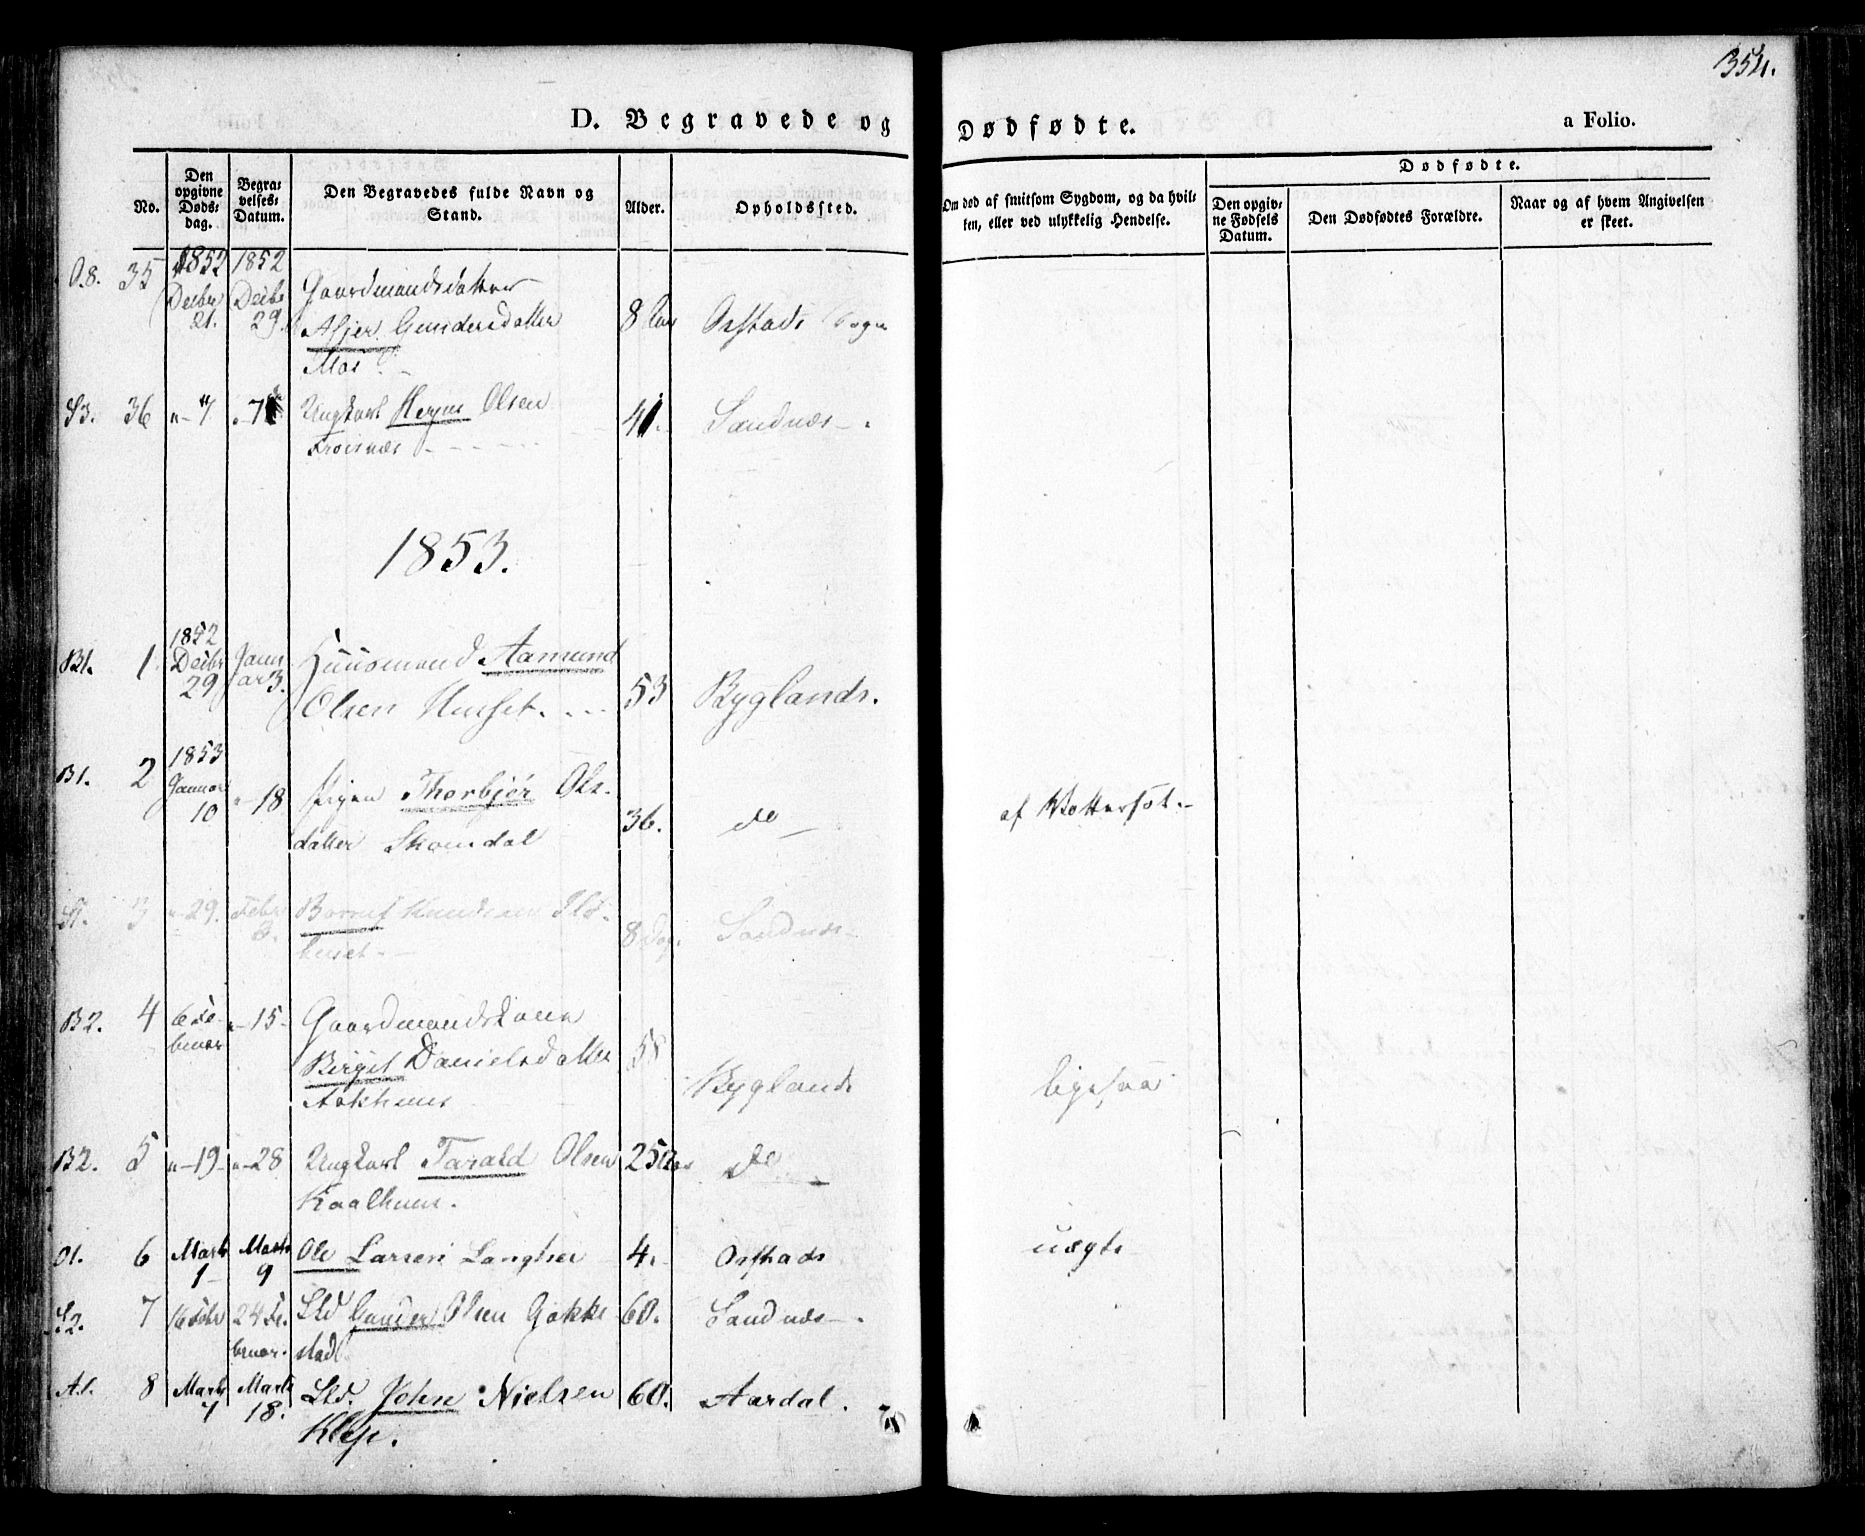 354.
D. Begravede og Dødfødte.
a Folio.
No.
Den opgivne Døds-dag.
Begra-velses-Datum.
Den Begravedes fulde Navn og Stand.
Alder.
Opholdssted.
Om død af smitsom Sygdom, og da hvil-ken, eller ved ulykkelig Hendelse.
Dødfødte.
Den opgiv-ne Fødsels Datum.
Den Dødfødtes Forældre.
Naar og af hvem Angivelsen er skeet.
O.8. 35 1852 Decbr 21. 1852 Decbr 29. Gaardmandsdatter
Asjer Gundersdatter 8 Aar Osstads Sogn
Moi
S3. 36 "-7 "-7 Ungkarl Herjus Olsen 41. Sandnæs
Frøisnæs
1853.
B1. 1. 1852 Decbr 29 Januar 3. Huusmand Aamund
Olsen Huuset. 53 Byglands.
B1. 2 1853 Januar 10 "-18 Pigen Thorbjør Ols-
datter Skomdal 36. do af Vattersot.
S1. 3 "-29. Febr Barnet Knud
8 Dag. Sandnæs
B2. 4 6 Februar "-15- Gaardmandskone
Birgit Danielsdatter 58
Aakhuus Byglands ligesaa
B2. 5 "-19- "-28 Ungkarl Tarald Olsen 25 Aar do
Kaalhuus.
O1. 6 Marts 1 Marts 9 Ole Larsen Langhei 4. Osstads uægte
S2. 7 16 Febr 24 Februar Lld Gunder Olsen Gakke 60. Sandnæs
stad
A1. 8 Marts 7 Marts 18. Lld. John Nielsen 60. Aardal.
Kleje.